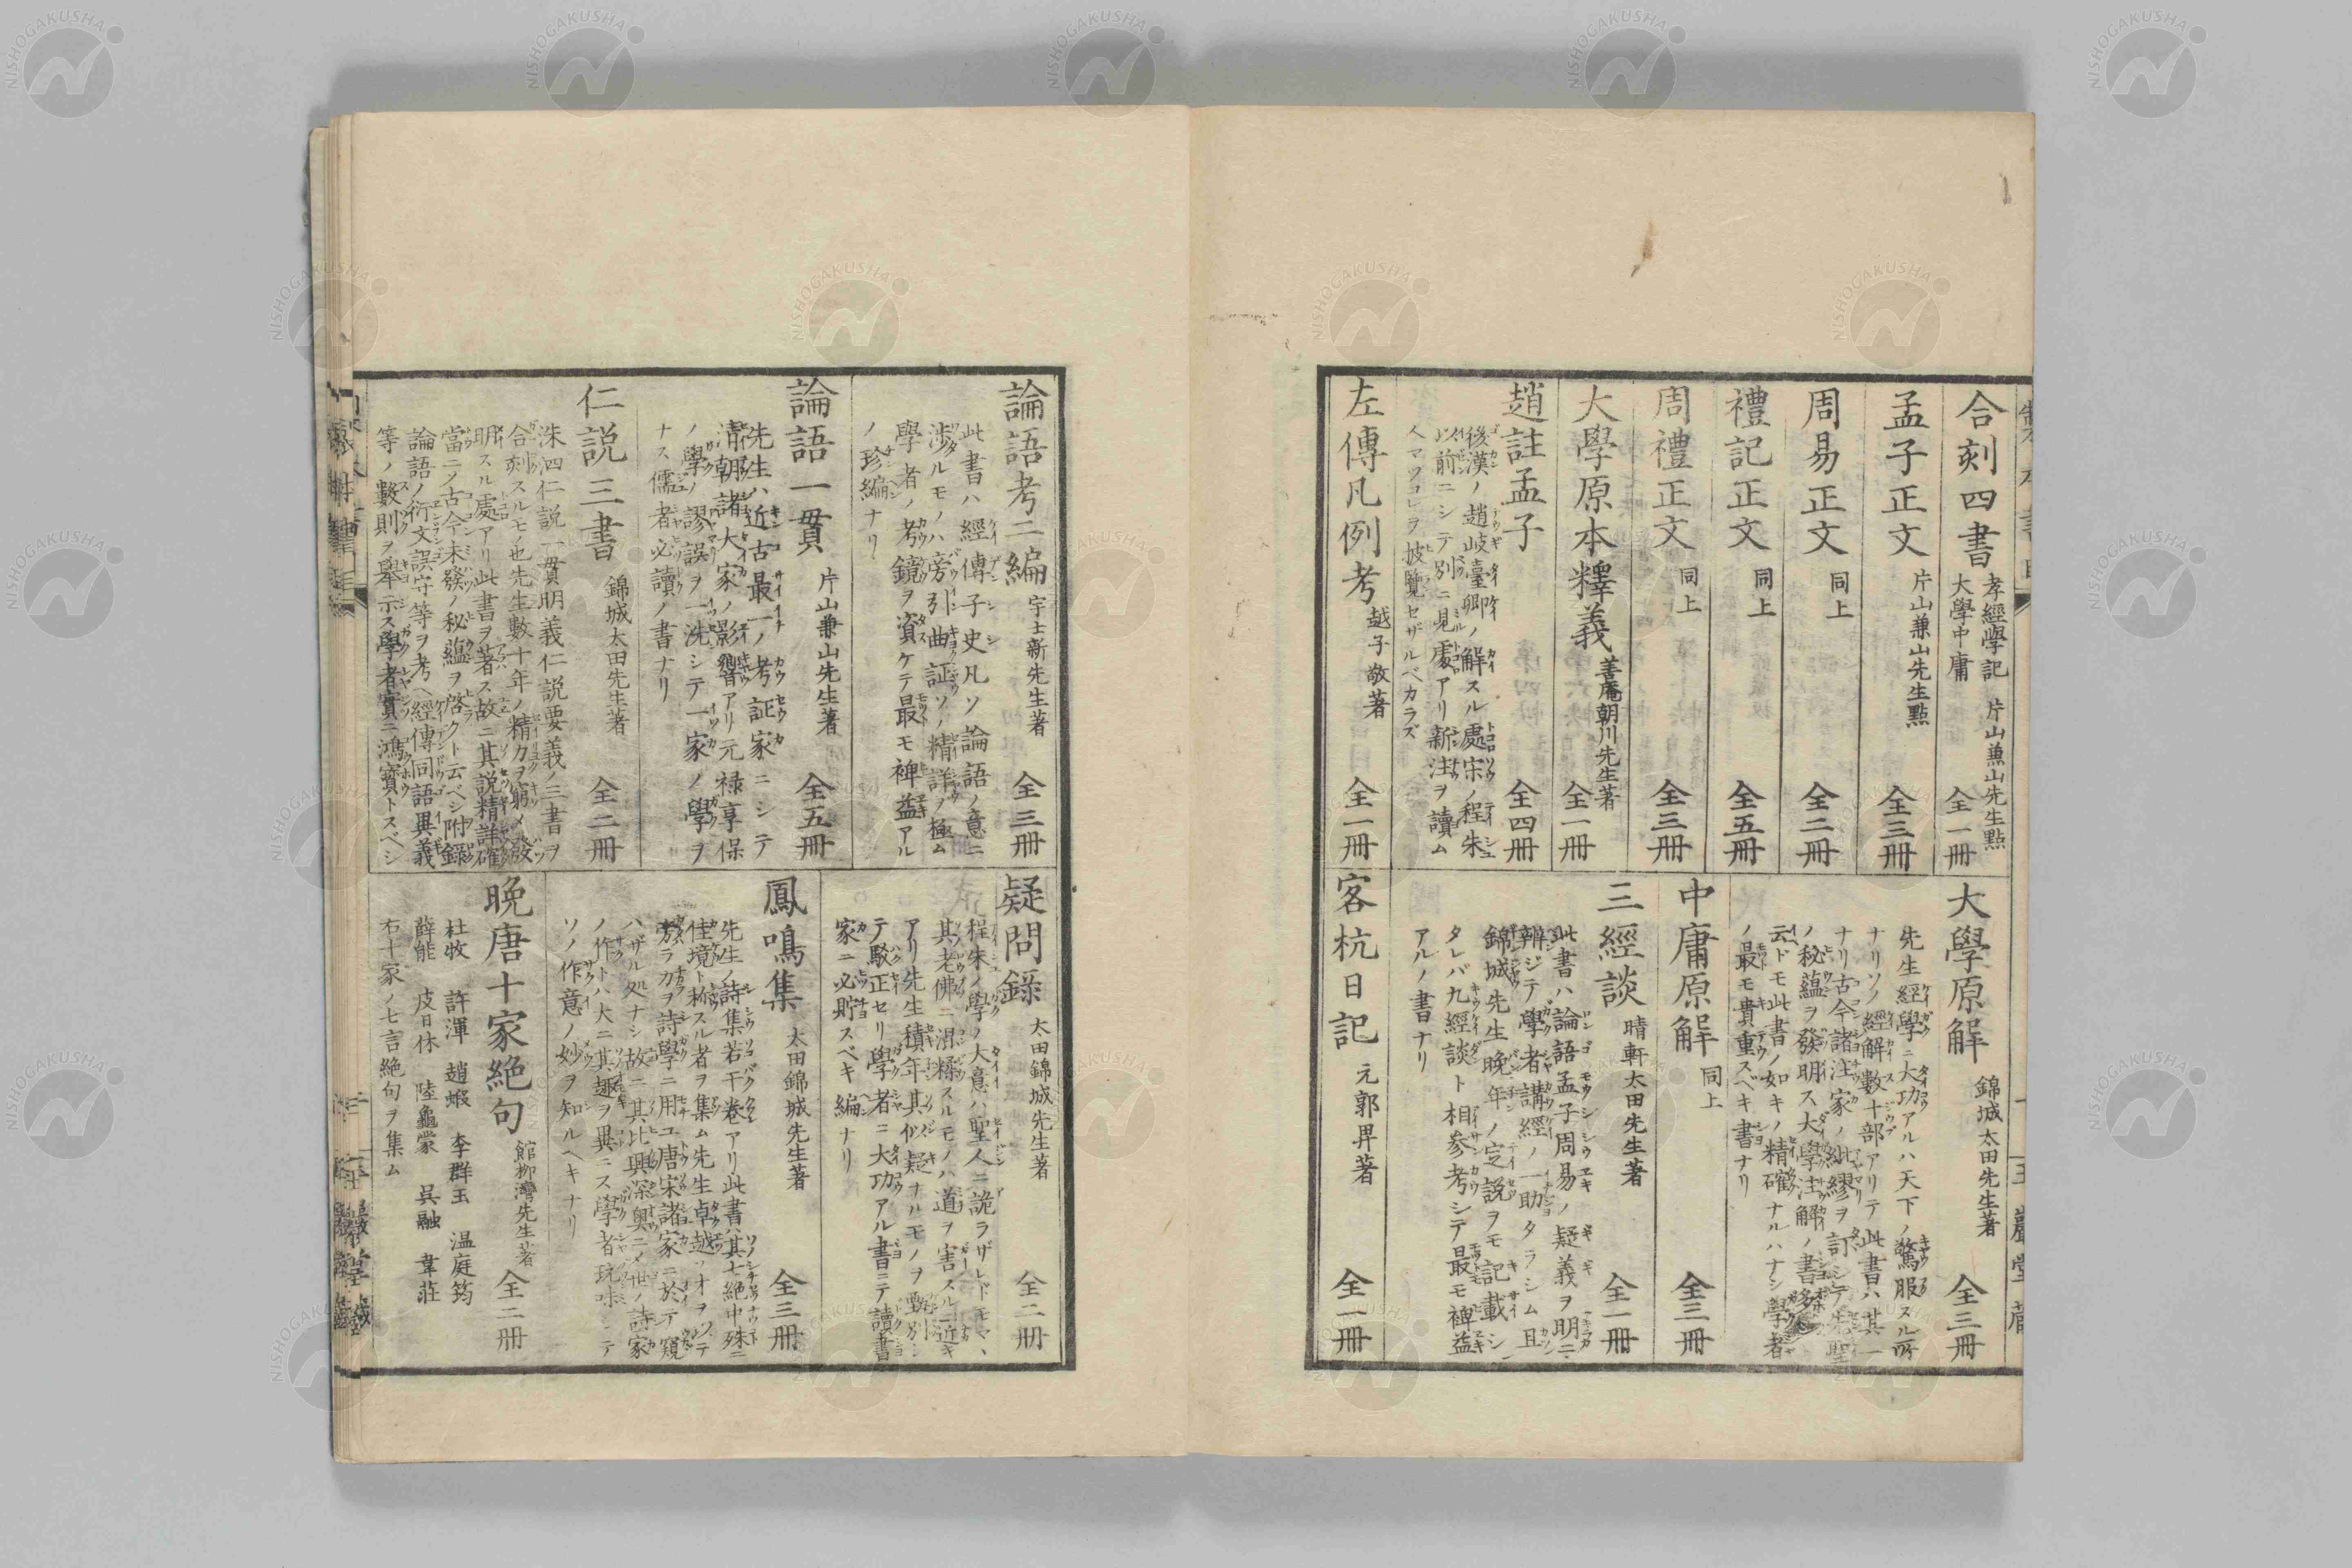 合刻四書
孝經學記
大學中庸
片山兼山先生點
全一冊
孟子正文
片山兼山先生點
全三冊
周易正文
同上
全二冊
禮記正文
同上
全五冊
周禮正文
同上
全三冊
大學原本釋義
善庵朝川先生著
全一冊
趙註孟子
全四冊
後漢ノ趙岐臺卿ノ解スル處宋ノ程朱
以前ニシテ別ニ見處アリ新注ヲ讀ム
人マツコレヲ披覽セザルベカラズ
左傳凡例考
越子敬著
全一冊
大學原解
錦城太田先生著
全三冊
先生經學ニ大功アルハ天下ノ驚服スル所
ナリソノ經解數十部アリテ此書ハ其一
ナリ古今諸注家ノ紕繆ヲ訂シテ先聖
ノ秘蘊ヲ發明ス大學注解ノ書多シト
云ドモ此書ノ如キノ精確ナルハナシ學者
ノ最モ貴重スベキ書ナリ
中庸原解
同上
全三冊
三經談
晴軒太田先生著
全一冊
此書ハ論語孟子周易ノ疑義ヲ明ニ
辨ジテ學者講經ノ一助タラシム且
錦城先生晚年ノ定說ヲモ記載シ
タレバ九經談ト相參考シテ最モ裨益
アルノ書ナリ
客杭日記
元郭畀著
全一冊
論語考二編
宇士新先生著
全三冊
此書ハ經傳子史凡ソ論語ノ意ニ
涉ルモノハ旁引曲証ソノ精詳ヲ極ム
學者ノ考鏡ヲ資ケテ最モ裨益アル
ノ珍編ナリ
論語一貫
片山兼山先生著
全五冊
先生ハ近古最一ノ考証家ニシテ
清朝諸大家ノ影響アリ元禄享保
ノ學ノ謬誤ヲ一洗シテ一家ノ學ヲ
ナス儒者必讀ノ書ナリ
仁説三書
錦城太田先生著
全二冊
洙泗仁説一貫明義仁説要義ノ三書ヲ
合刻スルモノ也先生數十年ノ精力ヲ窮メ發
明スル處アリ此書ヲ著ス故ニ其説精詳確
當ニノ古今未發ノ秘蘊ヲ啓クト云ベシ附錄
論語ノ衍文誤守等ヲ考ヘ經傳同語異義
等ノ數則ヲ擧示ス學者實ニ鴻寶トスベシ
疑問錄
太田錦城先生著
全二册
程朱ノ學ノ大意ハ聖人ニ詭ラザレドモマヽ
其老佛ニ溷糅スルモノハ道ヲ害スルニ近キ
アリ先生積年其似疑ナルモノヲ甄別シ
テ駁正セリ學者ニ大功アル書ニテ讀書
家ニ必貯スベキ編ナリ
鳳鳴集
太田錦城先生著
全三冊
先生ノ詩集若干卷アリ此書ハ其七絶中殊ニ
佳境ト称スル者ヲ集ム先生卓越ノオヲ以テ
旁ラカヲ詩學ニ用ユ唐宋諸家ニ於テ窺
ハザル処ナシ故ニ其比興深奥ニメ世ノ詩家
ノ作トハ大ニ其趣ヲ異ニス學者玩味シテ
ソノ作意ノ妙ヲ知ルヘキナリ
晚唐十家絶句
館柳灣先生著
全二冊
杜牧 許渾 趙嘏 李群玉 温庭筠
薛能 皮日休 陸龜蒙 吳融 韋莊
右十家ノ七言絶句ヲ集ム
NISHOGAKUSHA